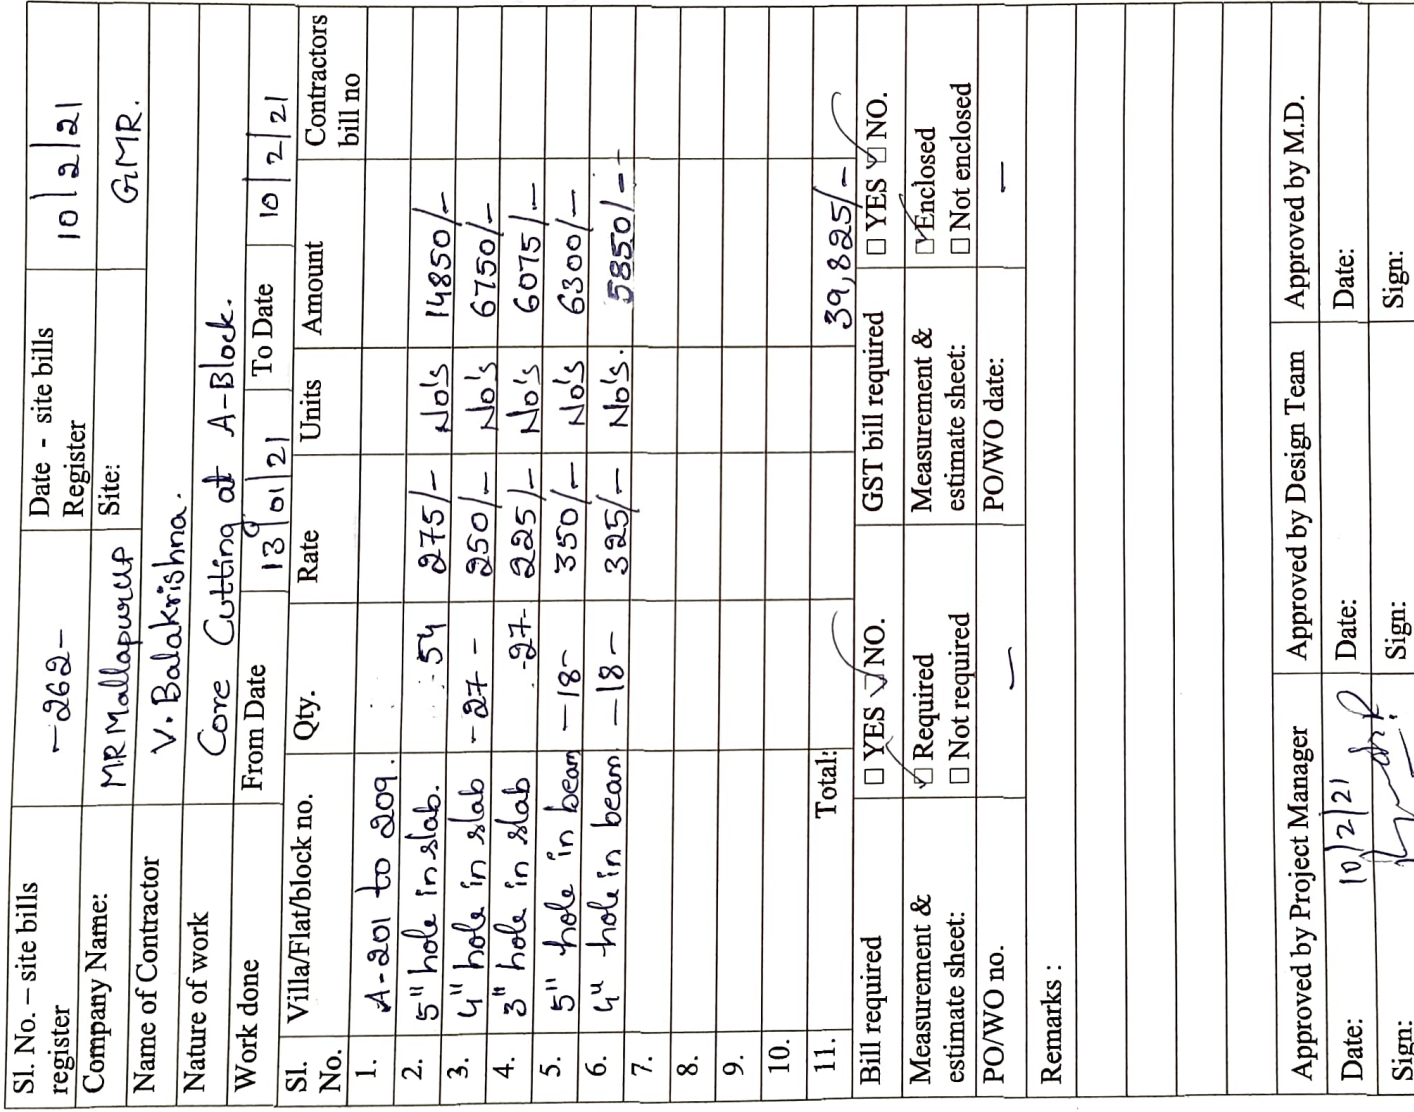 Sl. No. – site bills register -262- Date - site bills Register 10/2/21
Company Name: MR Mallapur LLP Site: GMR.
Name of Contractor V. Balakrishna.
Nature of work Core Cutting at A-Block.
Work done From Date 13/01/21 To Date 10/2/21
Sl. No. Villa/Flat/block no. Qty. Rate Units Amount Contractors bill no
1. A-201 to 209.
2. 5" hole in slab. 54 275/- No's 14850/-
3. 4" hole in slab -27- 250/- No's 6750/-
4. 3" hole in slab -27- 225/- No's 6075/-
5. 5" hole in beam -18- 350/- No's 6300/-
6. 4" hole in beam -18- 325/- No's. 5850/-
7.
8.
9.
10.
11. Total: 39,825/-
Bill required □ YES ☑ NO. GST bill required □ YES ☑ NO.
Measurement & estimate sheet: ☑ Required □ Not required Measurement & estimate sheet: ☑ Enclosed □ Not enclosed
PO/WO no. — PO/WO date: —
Remarks :
Approved by Project Manager Approved by Design Team Approved by M.D.
Date: 10/2/21 Date: Date:
Sign: Sign: Sign: